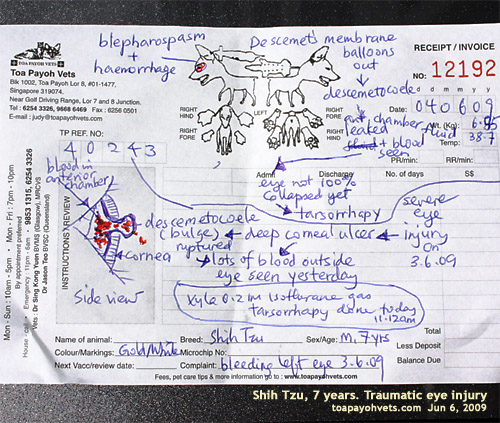 blepharospasm
+
haemorrhage
Descemet's membrane
balloons
out
→ descemetocoele
RECEIPT / INVOICE
NO: 12192
Toa Payoh Vets
Blk 1002, Toa Payoh Lor 8, #01-1477,
Singapore 319074.
Near Golf Driving Range, Lor 7 and 8 Junction.
Tel : 6254 3326, 9668 6469 Fax : 6256 0501
E-mail : judy@toapayohvets.com
d d m m y y
Date: 040609
Wt. (Kg): 6.95
Temp: 38.7
RIGHT HIND
LEFT
RIGHT HIND
RIGHT FORE
RIGHT FORE
chamber fluid
leaked
+ blood
seen
TP REF. NO:
40243
Admit
Discharge
No. of days
PR/min:
RR/min:
S$
blood in
anterior
chamber
eye not 100%
collapsed yet
→ tarsorrhapy
severe
eye
injury
on
3.6.09
descemetocoele
(bulge) ← deep corneal ulcer ←
ruptured
cornea
→ lots of blood outside
eye seen yesterday
side view
INSTRUCTIONS / REVIEW
Mon - Sun : 10am - 5pm • Mon - Fri : 7pm - 10pm
By appointment preferred
House - call • Emergency : 11pm - 6am 9853 1315, 6254 3326
Vets : Dr Sing Kong Yuen BVMS (Glasgow), MRCVS
Dr Jason Teo BVSC (Queensland)
xyle 0.2 im isoflurane gas
tarsorrhapy done today
11.12am
Name of animal:
Breed: Shih Tzu
Sex/Age: M. 7yrs
Colour/Markings: Gold/White
Microchip No:
Next Vacc/review date:
Complaint: bleeding left eye 3.6.09
Total
Less Deposit
Balance Due
Fees, pet care tips & more information go to : www.toapayohvets.com
Shih Tzu, 7 years. Traumatic eye injury
toapayohvets.com Jun 6, 2009